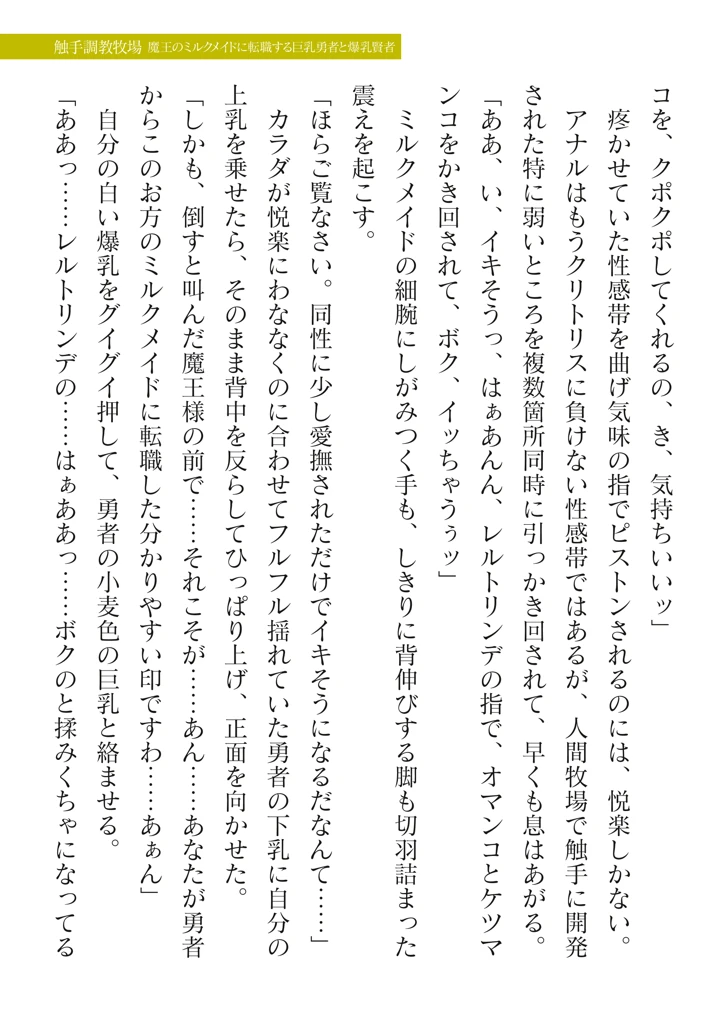 触手調教牧場 魔王のミルクメイドに転職する巨乳勇者と爆乳賢者
コを、クポクポしてくれるの、き、気持ちいいッ」
疼かせていた性感帯を曲げ気味の指でピストンされるのには、悦楽しかない。
アナルはもうクリトリスに負けない性感帯ではあるが、人間牧場で触手に開発
された特に弱いところを複数箇所同時に引っかき回されて、早くも息はあがる。
「ああ、い、イキそうっ、はぁあんん、レルトリンデの指で、オマンコとケツマ
ンコをかき回されて、ボク、イッちゃうぅッ」
ミルクメイドの細腕にしがみつく手も、しきりに背伸びする脚も切羽詰まった
震えを起こす。
「ほらご覧なさい。同性に少し愛撫されただけでイキそうになるだなんて……」
カラダが悦楽にわななくのに合わせてフルフル揺れていた勇者の下乳に自分の
上乳を乗せたら、そのまま背中を反らしてひっぱり上げ、正面を向かせた。
「しかも、倒すと叫んだ魔王様の前で……それこそが……あん……あなたが勇者
からこのお方のミルクメイドに転職した分かりやすい印ですわ……あぁん」
自分の白い爆乳をグイグイ押して、勇者の小麦色の巨乳と絡ませる。
「ああっ……レルトリンデの……はぁああっ……ボクのと揉みくちゃになってる